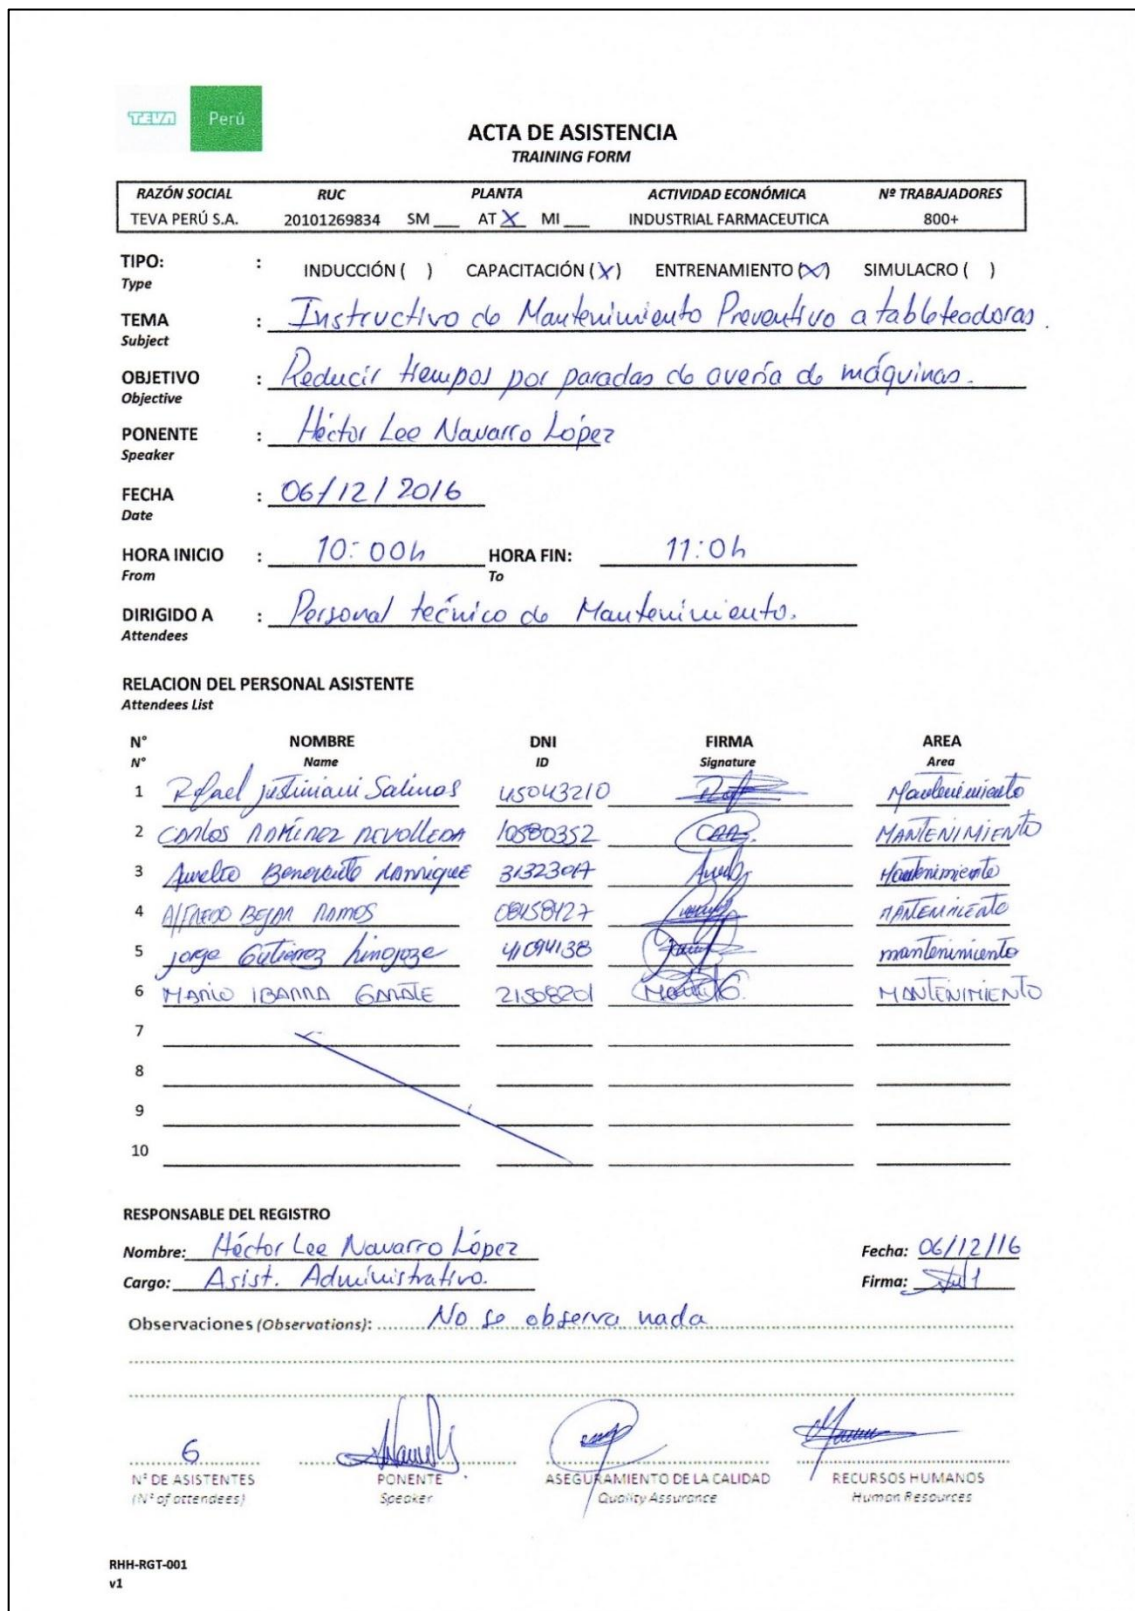 TEVA Perú
ACTA DE ASISTENCIA
TRAINING FORM
RAZÓN SOCIAL RUC PLANTA ACTIVIDAD ECONÓMICA Nº TRABAJADORES
TEVA PERÚ S.A. 20101269834 SM ___ AT X MI ___ INDUSTRIAL FARMACEUTICA 800+
TIPO: : INDUCCIÓN ( ) CAPACITACIÓN (X) ENTRENAMIENTO (X) SIMULACRO ( )
Type
TEMA : Instructivo de Mantenimiento Preventivo a tableteadoras.
Subject
OBJETIVO : Reducir tiempos por paradas de avería de máquinas.
Objective
PONENTE : Héctor Lee Navarro López
Speaker
FECHA : 06/12/2016
Date
HORA INICIO : 10:00h HORA FIN: 11:0h
From To
DIRIGIDO A : Personal técnico de Mantenimiento.
Attendees
RELACION DEL PERSONAL ASISTENTE
Attendees List
N° NOMBRE DNI FIRMA AREA
N° Name ID Signature Area
1 Rafael justiniani Salinas 45043210 Mantenimiento
2 CARLOS RAMÍREZ REVOLLEDA 10580352 MANTENIMIENTO
3 Aurelio Benavente Manrique Mantenimiento
4 ALFREDO BEJAR RAMOS 08158127 MANTENIMIENTO
5 jorge Gutierrez hinojoza 41094138 mantenimiento
6 MARIO IBARRA GARATE 21508201 MANTENIMIENTO
7
8
9
10
RESPONSABLE DEL REGISTRO
Nombre: Héctor Lee Navarro López Fecha: 06/12/16
Cargo: Asist. Administrativo. Firma:
Observaciones (Observations): No se observa nada
6
Nº DE ASISTENTES PONENTE ASEGURAMIENTO DE LA CALIDAD RECURSOS HUMANOS
(Nº of attendees) Speaker Quality Assurance Human Resources
RHH-RGT-001
v1